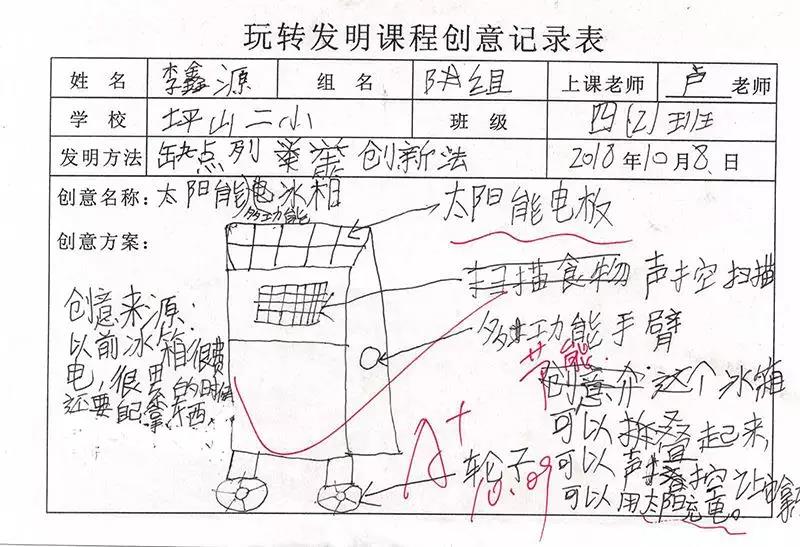 玩转发明课程创意记录表
姓名 李鑫源 组名 队A组 上课老师 卢 老师
学校 坪山二小 班级 四(2)班
发明方法 缺点列举 创新法 2018年10月8日
创意名称：太阳能电冰箱
多功能
创意方案：
太阳能电板
扫描食物 声控扫描
多功能手臂
创意来源：
以前冰箱很费
电，很累的时候
还要自己拿东西
节能
创意介 这个冰箱
可以折叠起来，
可以声控让它拿
可以用太阳充电。
轮子
A+
10.09